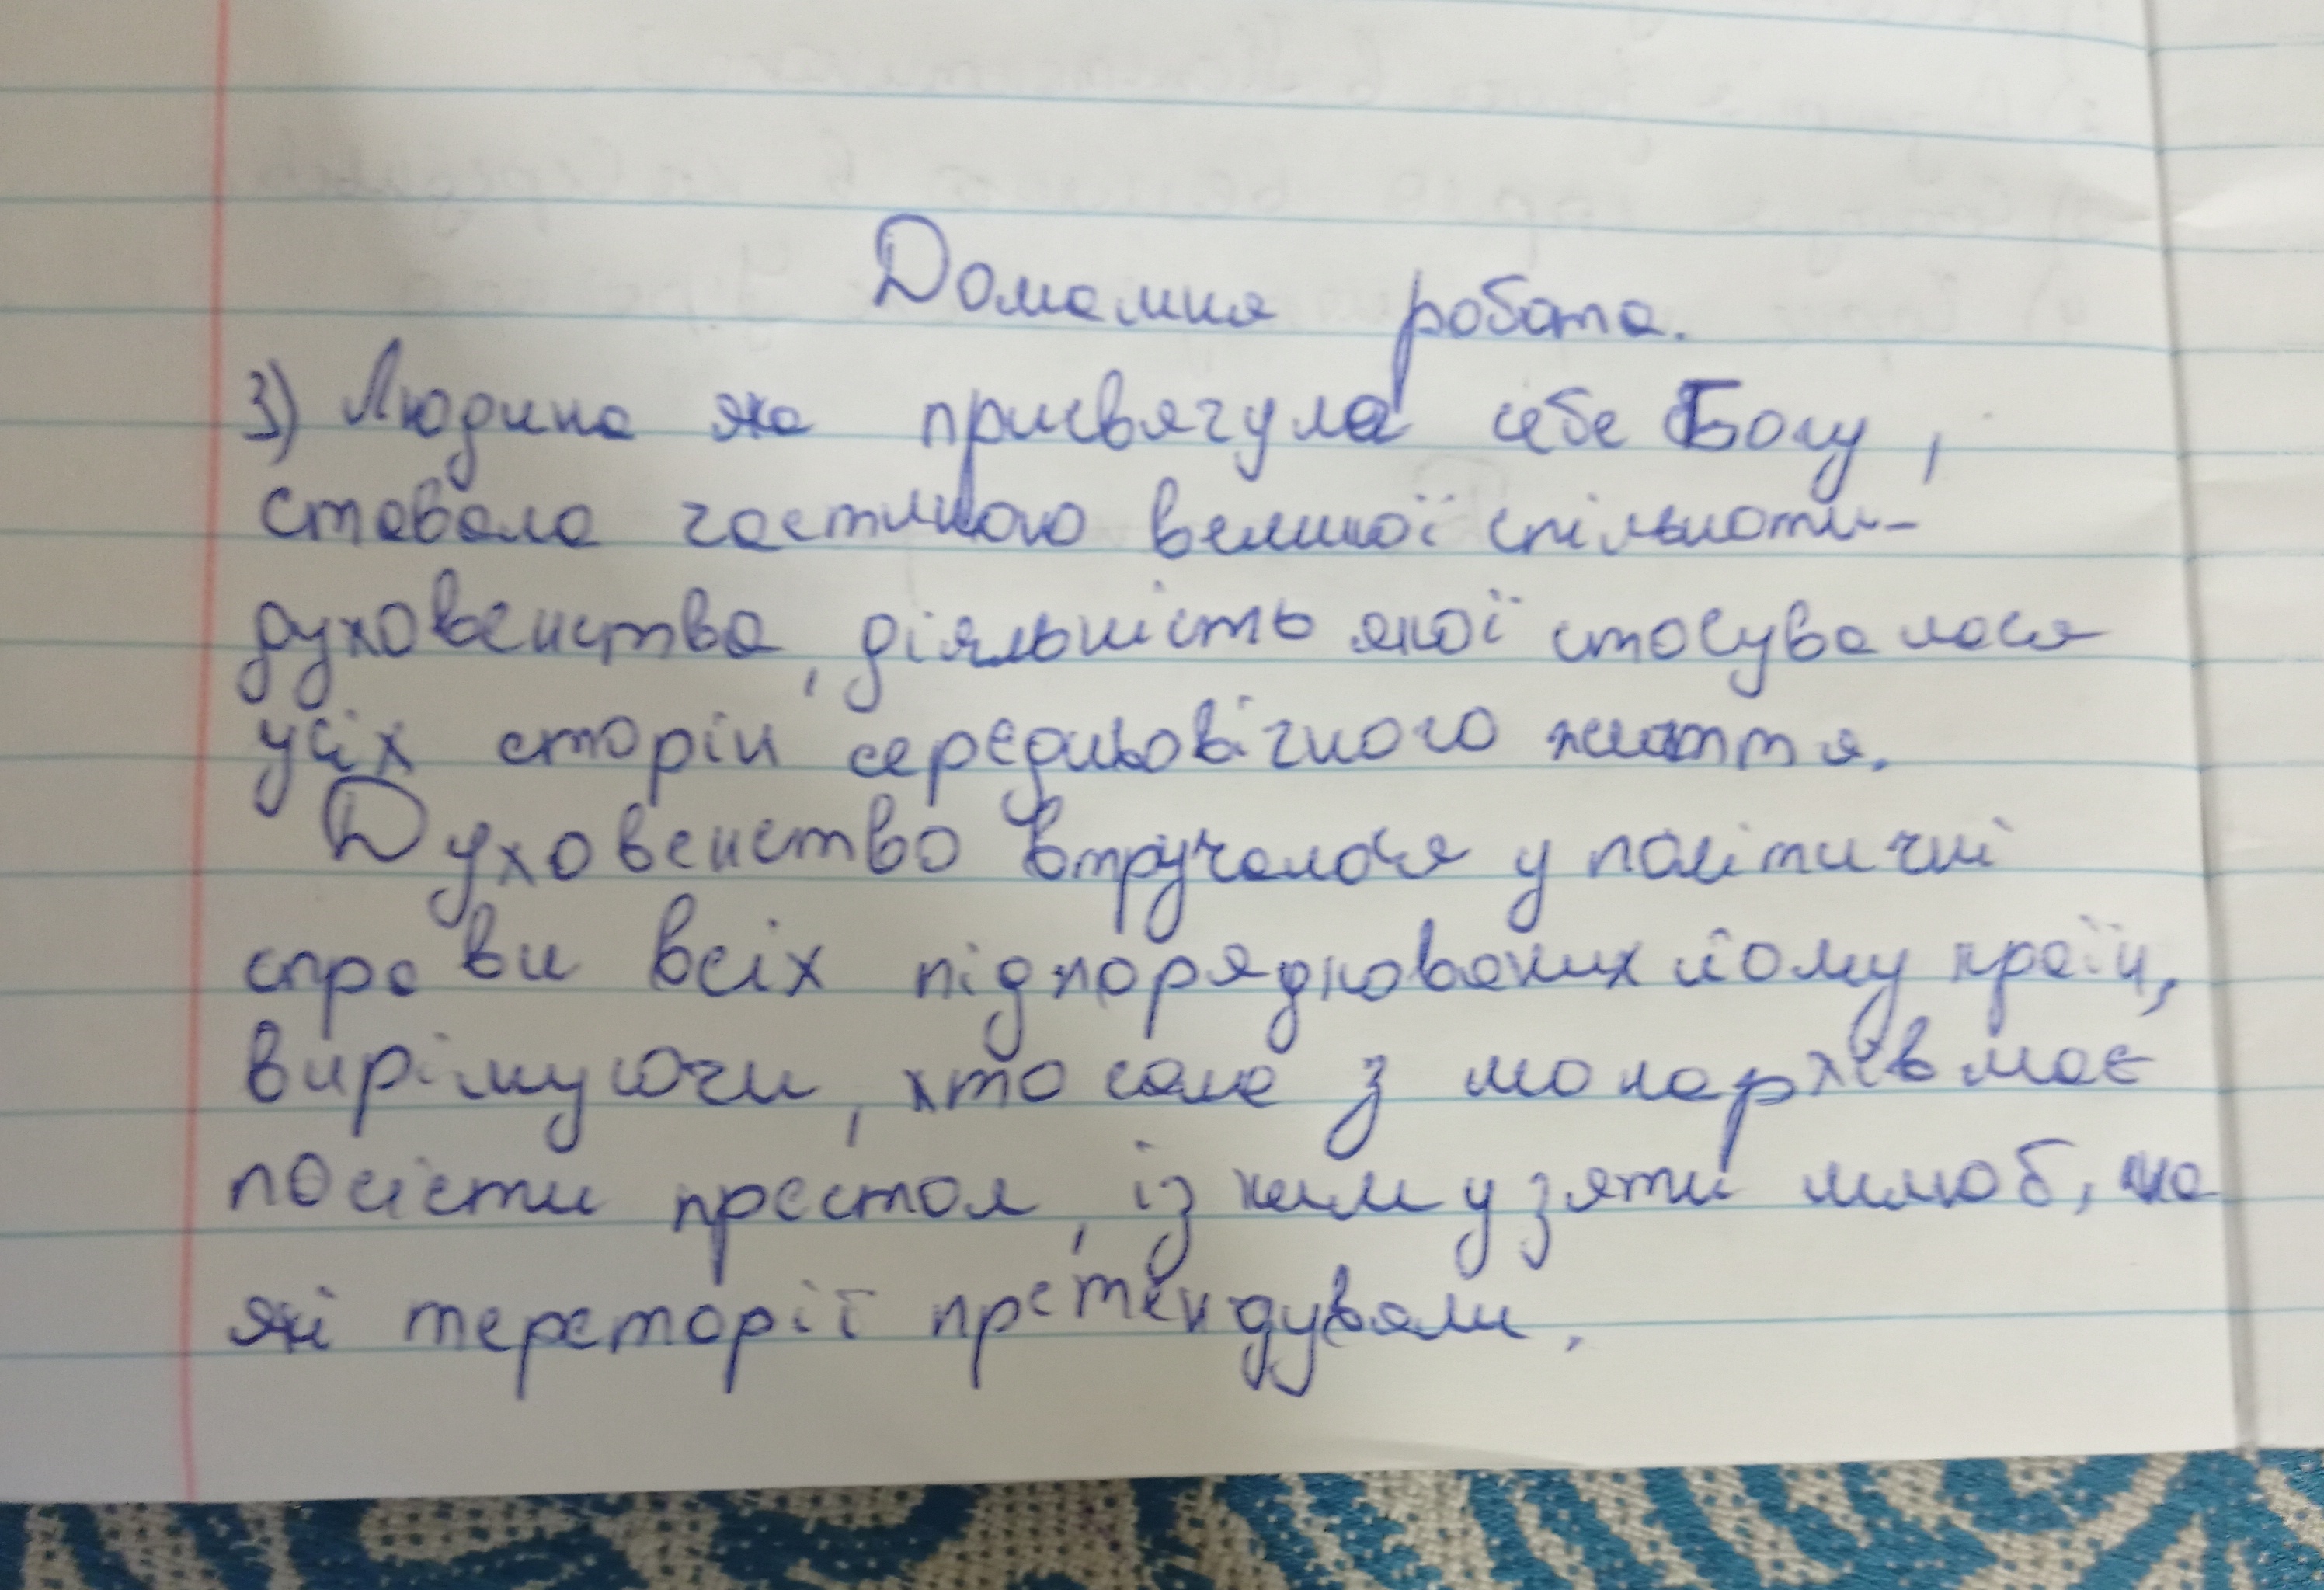 Домашня робота.
3) Людина яка присвятула себе Богу,
ставала частиною великої спільноти-
духовенства, діяльність якої стосувалася
усіх сторін середньовічного життя.
Духовенство втручалося у політичні
справи всіх підпорядкованих йому країн,
вирішуючи, хто саме з монархів має
посісти престол, із ким узяти шлюб, на
які тереторії претендували.